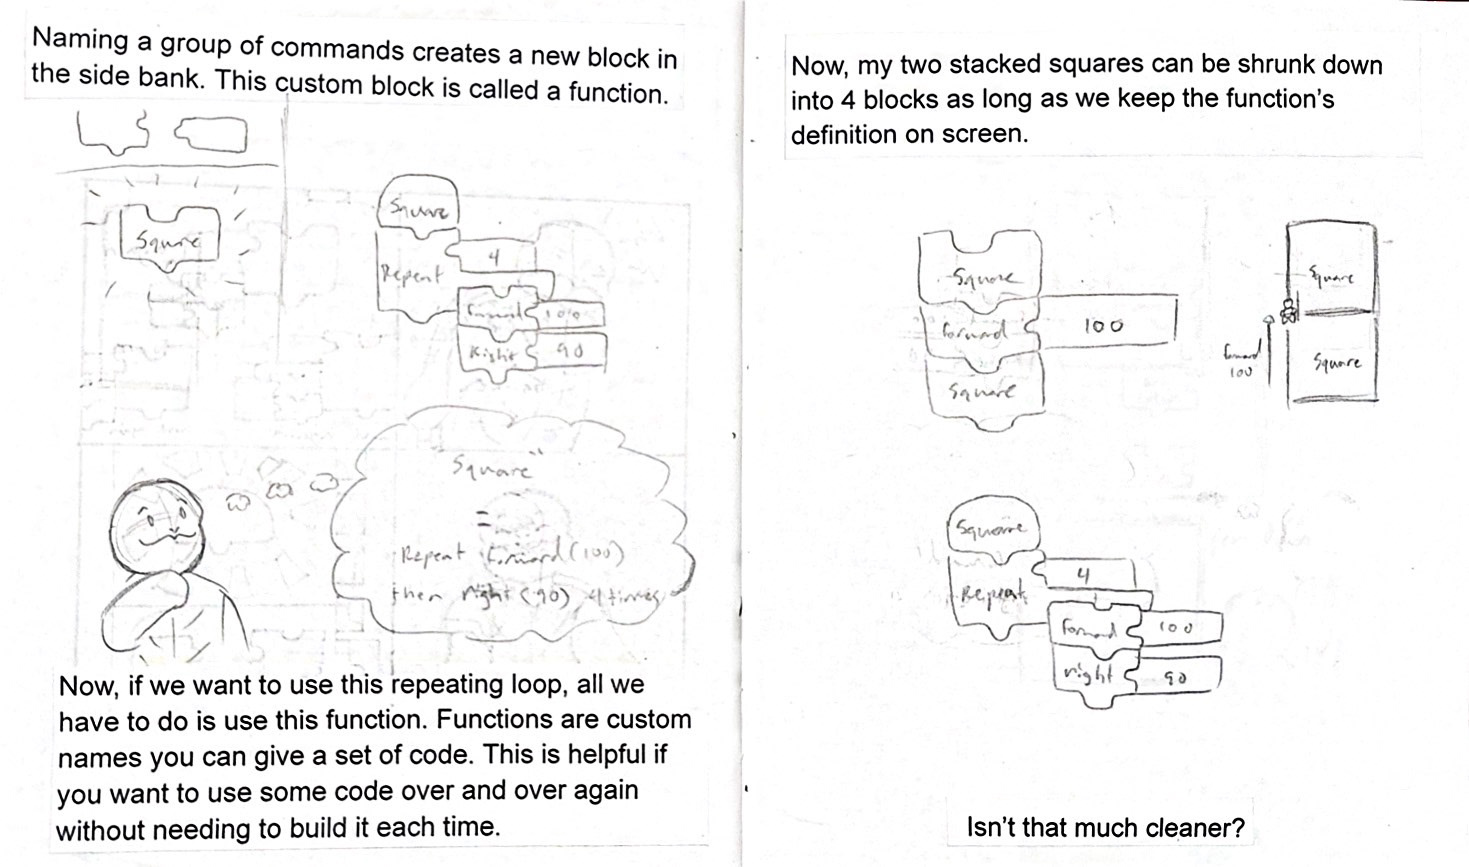 Naming a group of commands creates a new block in
the side bank. This custom block is called a function.
Square
Square
Repeat
4
Forward
100
Right
90
"Square"
=
Repeat forward (100)
then right (90) 4 times
Now, if we want to use this repeating loop, all we
have to do is use this function. Functions are custom
names you can give a set of code. This is helpful if
you want to use some code over and over again
without needing to build it each time.
Now, my two stacked squares can be shrunk down
into 4 blocks as long as we keep the function's
definition on screen.
Square
forward
100
Square
Square
forward
100
Square
Square
Repeat
4
forward
100
right
90
Isn't that much cleaner?